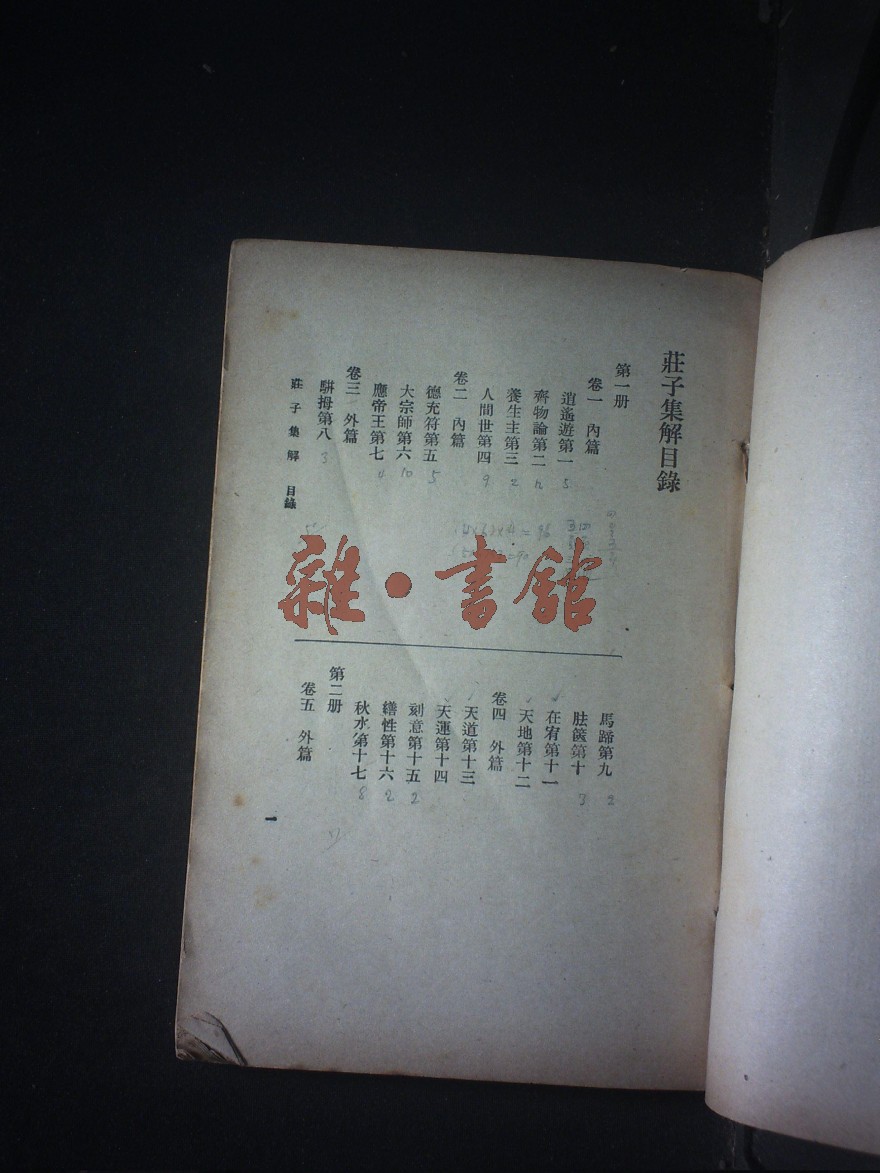 莊子集解目錄
第一册
卷一 內篇
逍遙遊第一 5
齊物論第二
養生主第三 2
人間世第四 9
卷二 內篇
德充符第五 5
大宗師第六 10
應帝王第七 4
卷三 外篇
駢拇第八 3
馬蹄第九 2
胠篋第十 3
在宥第十一
天地第十二
卷四 外篇
天道第十三
天運第十四
刻意第十五 2
繕性第十六 2
秋水第十七 8
第二册
卷五 外篇
莊子集解 目錄
一
= 96
雜·書館